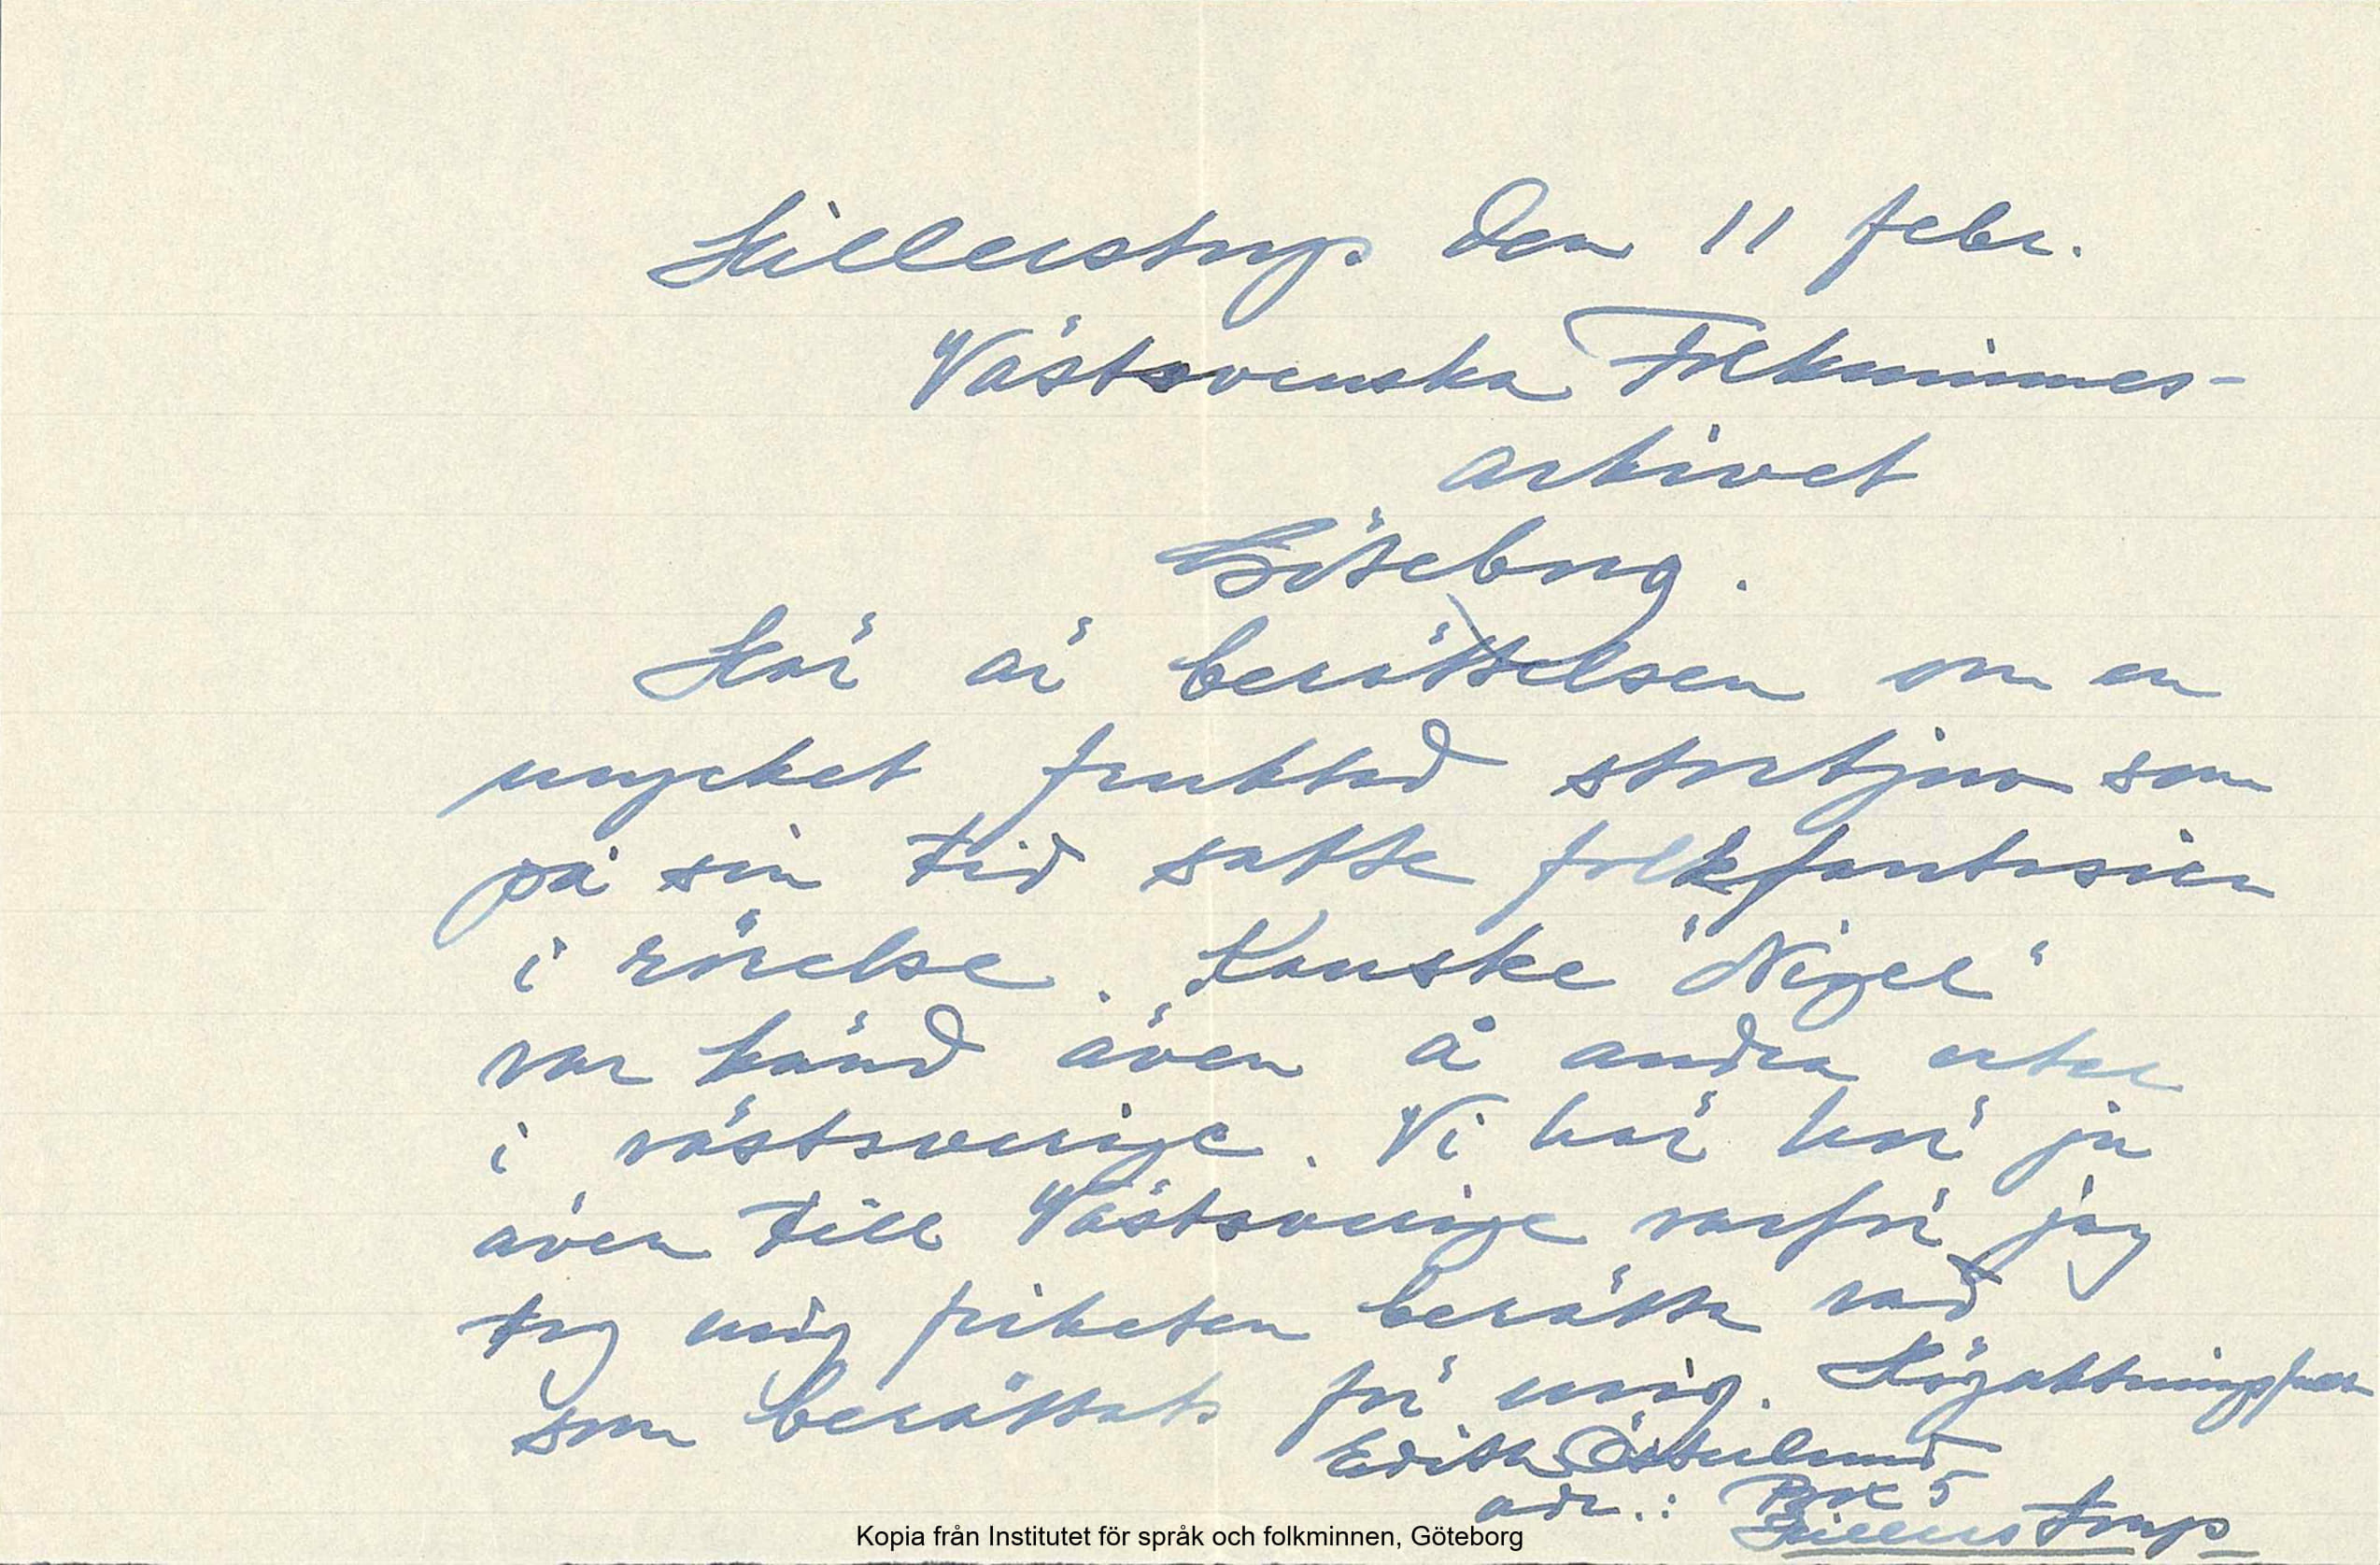 Hillerstrup den 11 febr.
Västsvenska Folkminnes-
arkivet
Göteborg.
Här är berättelsen om en
mycket fruktad stortjuv som
på sin tid satte folkfantasien
i rörelse. Kanske "Nigel"
var känd även å andra orter
i västsverige. Vi här hör ju
även till Västsverige varför jag
tog mig friheten berätta vad
som berättats för mig. Högaktningsfullt
Edith Österlund
adr.: Box 5
Hillerstrup
Kopia från Institutet för språk och folkminnen, Göteborg